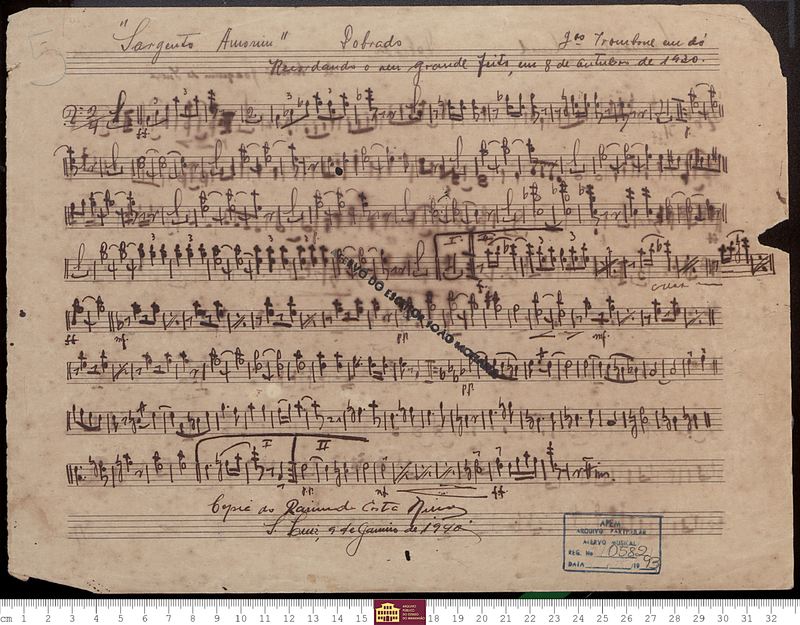 5
"Sargento Amorim" Dobrado
Trombone em dó
Recordando o seu grande feito, em 8 de outubro de 1920.
ff
3 3 3 3
I II
3 3 3 3
ff mf pp mf
pp
I II
pp mf ff
Fim.
Copia de Raimundo Costa
S. Luiz, 9 de Janeiro de 1940
ACERVO DO ESCRITOR JOÃO MO
APEM
ARQUIVO PARTICULAR
ACERVO MUSICAL
REG. No 0582
DATA 19 93
ARQUIVO PÚBLICO DO ESTADO DO MARANHÃO
cm 1 2 3 4 5 6 7 8 9 10 11 12 13 14 15 18 19 20 21 22 23 24 25 26 27 28 29 30 31 32